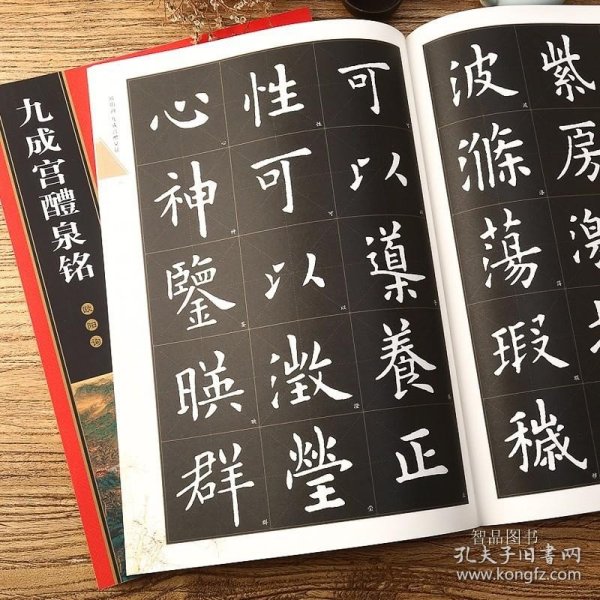 九成宫醴泉铭
紫房
波滌蕩瑕穢
可以導養正
性可以澂瑩
心神鑒暎群
智品图书
孔夫子旧书网
www.kongfz.com